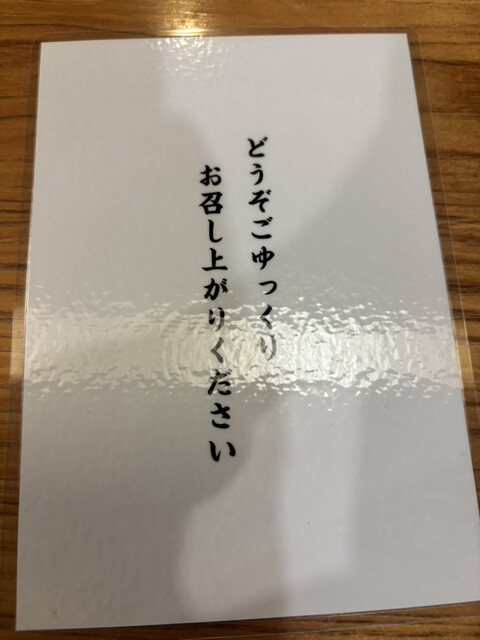 どうぞごゆっくり
お召し上がりください